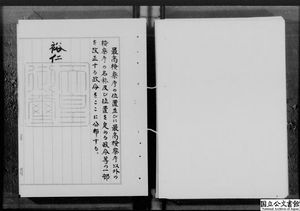 最高検察庁の位置並びに最高検察庁以外の
検察庁の名称及び位置を定める政令等の一部
を改正する政令をここに公布する。
裕仁
天皇
御璽
国立公文書館
National Archives of Japan